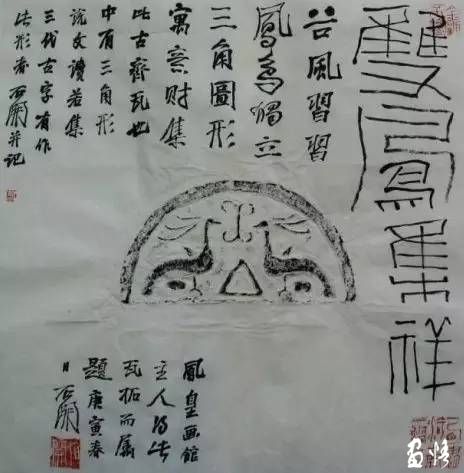 雙鳳集祥
谷風習習
鳳鳥獨立
三角圖形
寓意财集
此古齊瓦也
中有三角形
説文讀若集
三代古字有作
此形者石開并記
鳳皇画館
主人得此
瓦拓而屬
題庚寅春
日石開